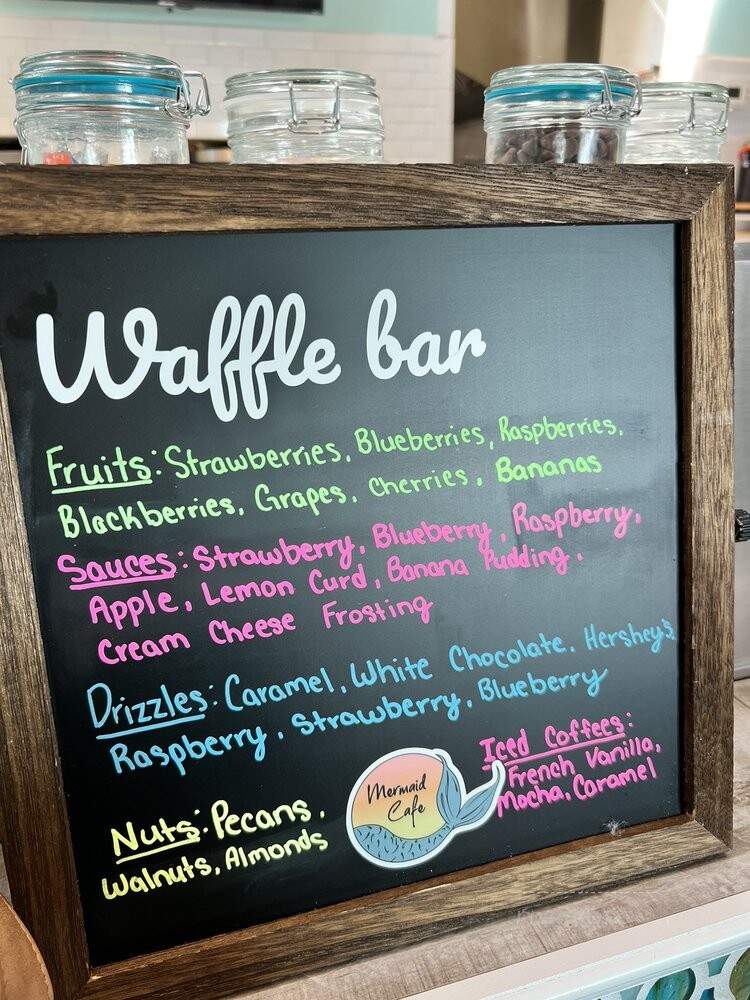 Waffle bar
Fruits: Strawberries, Blueberries, Raspberries,
Blackberries, Grapes, Cherries, Bananas
Sauces: Strawberry, Blueberry, Raspberry,
Apple, Lemon Curd, Banana Pudding,
Cream Cheese Frosting
Drizzles: Caramel, White Chocolate, Hershey's
Raspberry, Strawberry, Blueberry
Nuts: Pecans,
Walnuts, Almonds
Mermaid
Cafe
Iced Coffees:
French Vanilla,
Mocha, Caramel